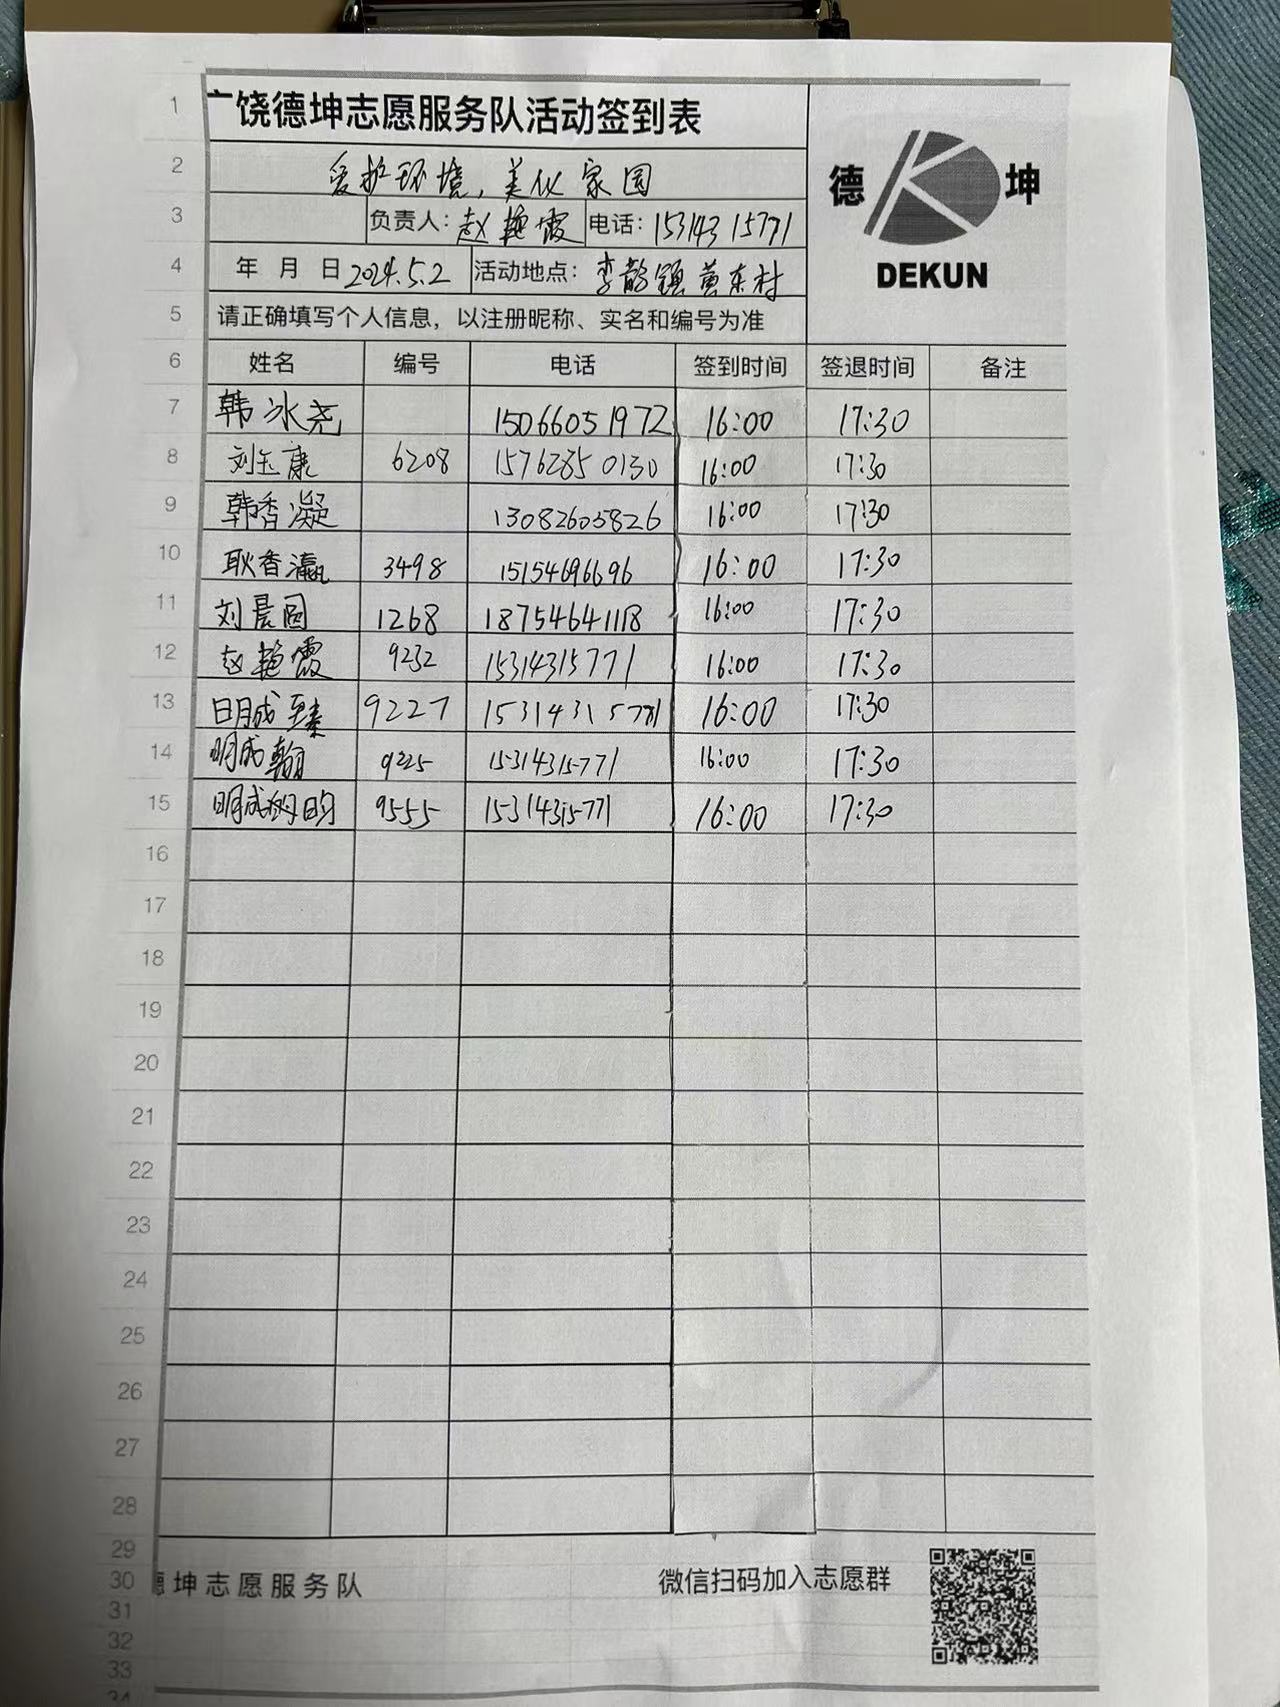 1 广饶德坤志愿服务队活动签到表
2 爱护环境，美化家园
德 坤
DEKUN
3 负责人：赵艳霞 电话：15314315771
4 年 月 日 2024.5.2 活动地点：李鹊镇黄东村
5 请正确填写个人信息，以注册昵称、实名和编号为准
6 姓名 编号 电话 签到时间 签退时间 备注
7 韩冰尧 15066051972 16:00 17:30
8 刘玉康 6208 15762850130 16:00 17:30
9 韩香凝 13082605826 16:00 17:30
10 耿香瀛 3498 15154696696 16:00 17:30
11 刘晨圆 1268 18754641118 16:00 17:30
12 赵艳霞 9232 15314315771 16:00 17:30
13 明成臻 9227 15314315771 16:00 17:30
14 明成翰 9225 15314315771 16:00 17:30
15 明成昀 9555 15314315771 16:00 17:30
16
17
18
19
20
21
22
23
24
25
26
27
28
29
30 德坤志愿服务队 微信扫码加入志愿群
31
32
33
34